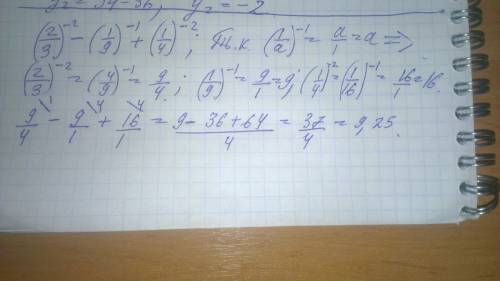 y₂ = 34-36, y₂ = -2
(2/3)⁻² - (1/9)⁻¹ + (1/4)⁻²; Т.к. (1/a)⁻¹ = a/1 = a ⇒
(2/3)⁻² = (4/9)⁻¹ = 9/4; (1/9)⁻¹ = 9/1 = 9; (1/4)⁻² = (1/16)⁻¹ = 16/1 = 16.
9/4 \1 - 9/1 \4 + 16/1 \4 = (9 - 36 + 64)/4 = 37/4 = 9,25.